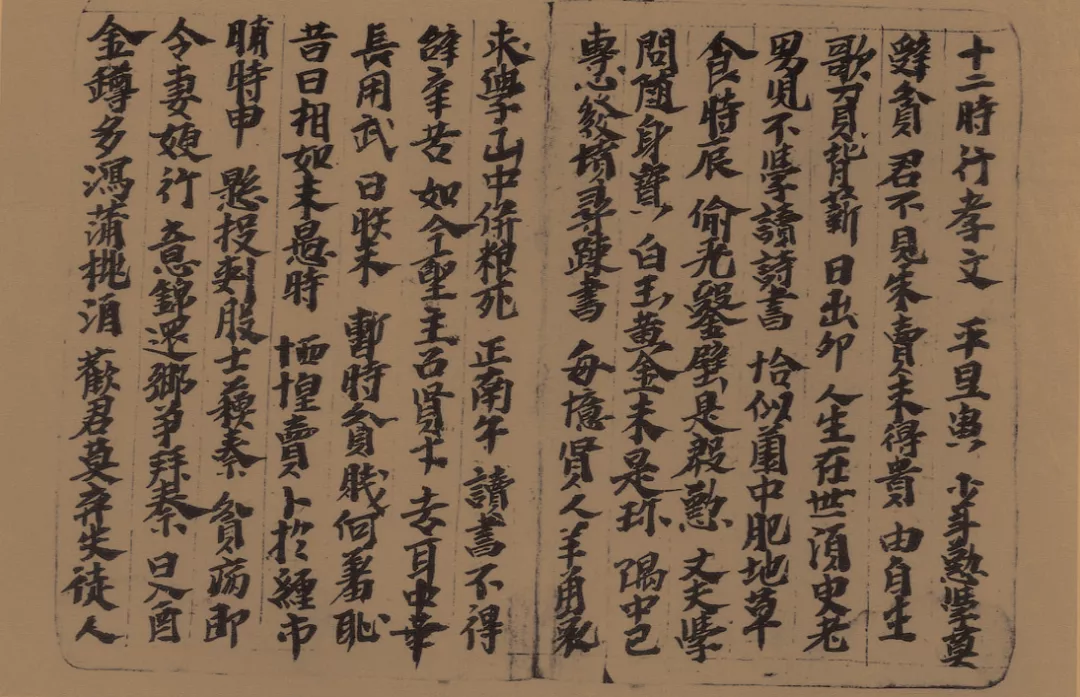 十二時行孝文 平旦寅 少年懃學莫
辭貧 君不見朱賣未得貴 由自行
歌負背薪 日出卯 人生在世須臾老
男兒不學讀詩書 恰似園中肥地草
食時辰 偷光鑿壁是殷懃 丈夫學
問隨身寶 白玉黃金未是珎 隅中巳
專心發墳尋踈書 每憶賢人羊角哀
求學山中併粮死 正南午 讀書不得
辭辛苦 如今聖主召賢才 去耳中華
長用武 日昳未 暫時貧賤何羞恥
昔日相如未愚時 恓惶賣卜於纏市
晡時申 懸投刺股士蘇秦 貧病即
令妻嫂行 意錦還鄉爭拜秦 日入酉
金罇多瀉蒲桃酒 歡君莫弃失徒人